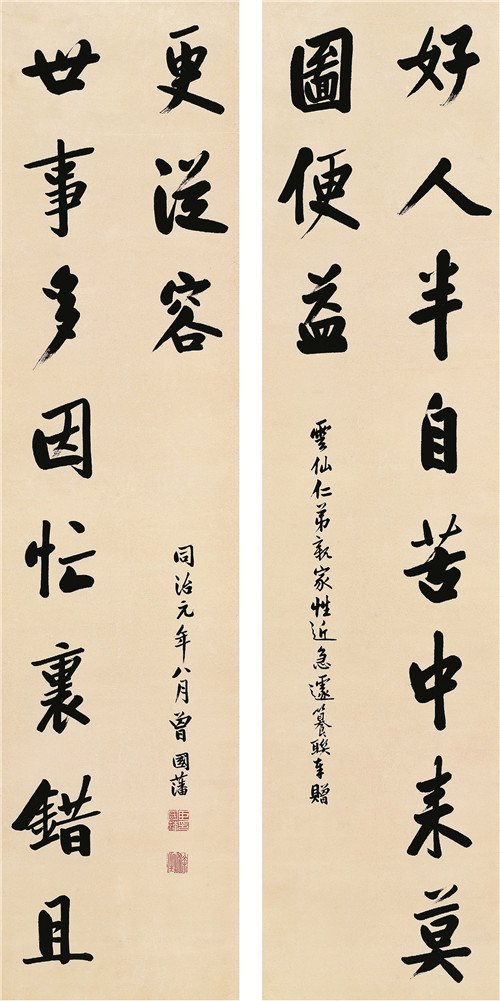 好人半自苦中来莫
圖便益
雲仙仁弟親家性近急遽纂聯奉贈
世事多因忙裏錯且
更従容
同治元年八月曾國藩